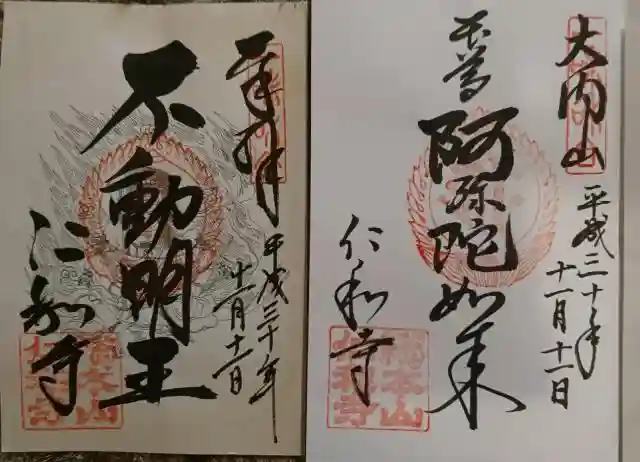 奉拝
平成三十年
十一月十一日
不動明王
仁和寺
総本山
仁和寺
大内山
平成三十年
十一月十一日
本尊
阿弥陀如来
仁和寺
総本山
仁和寺